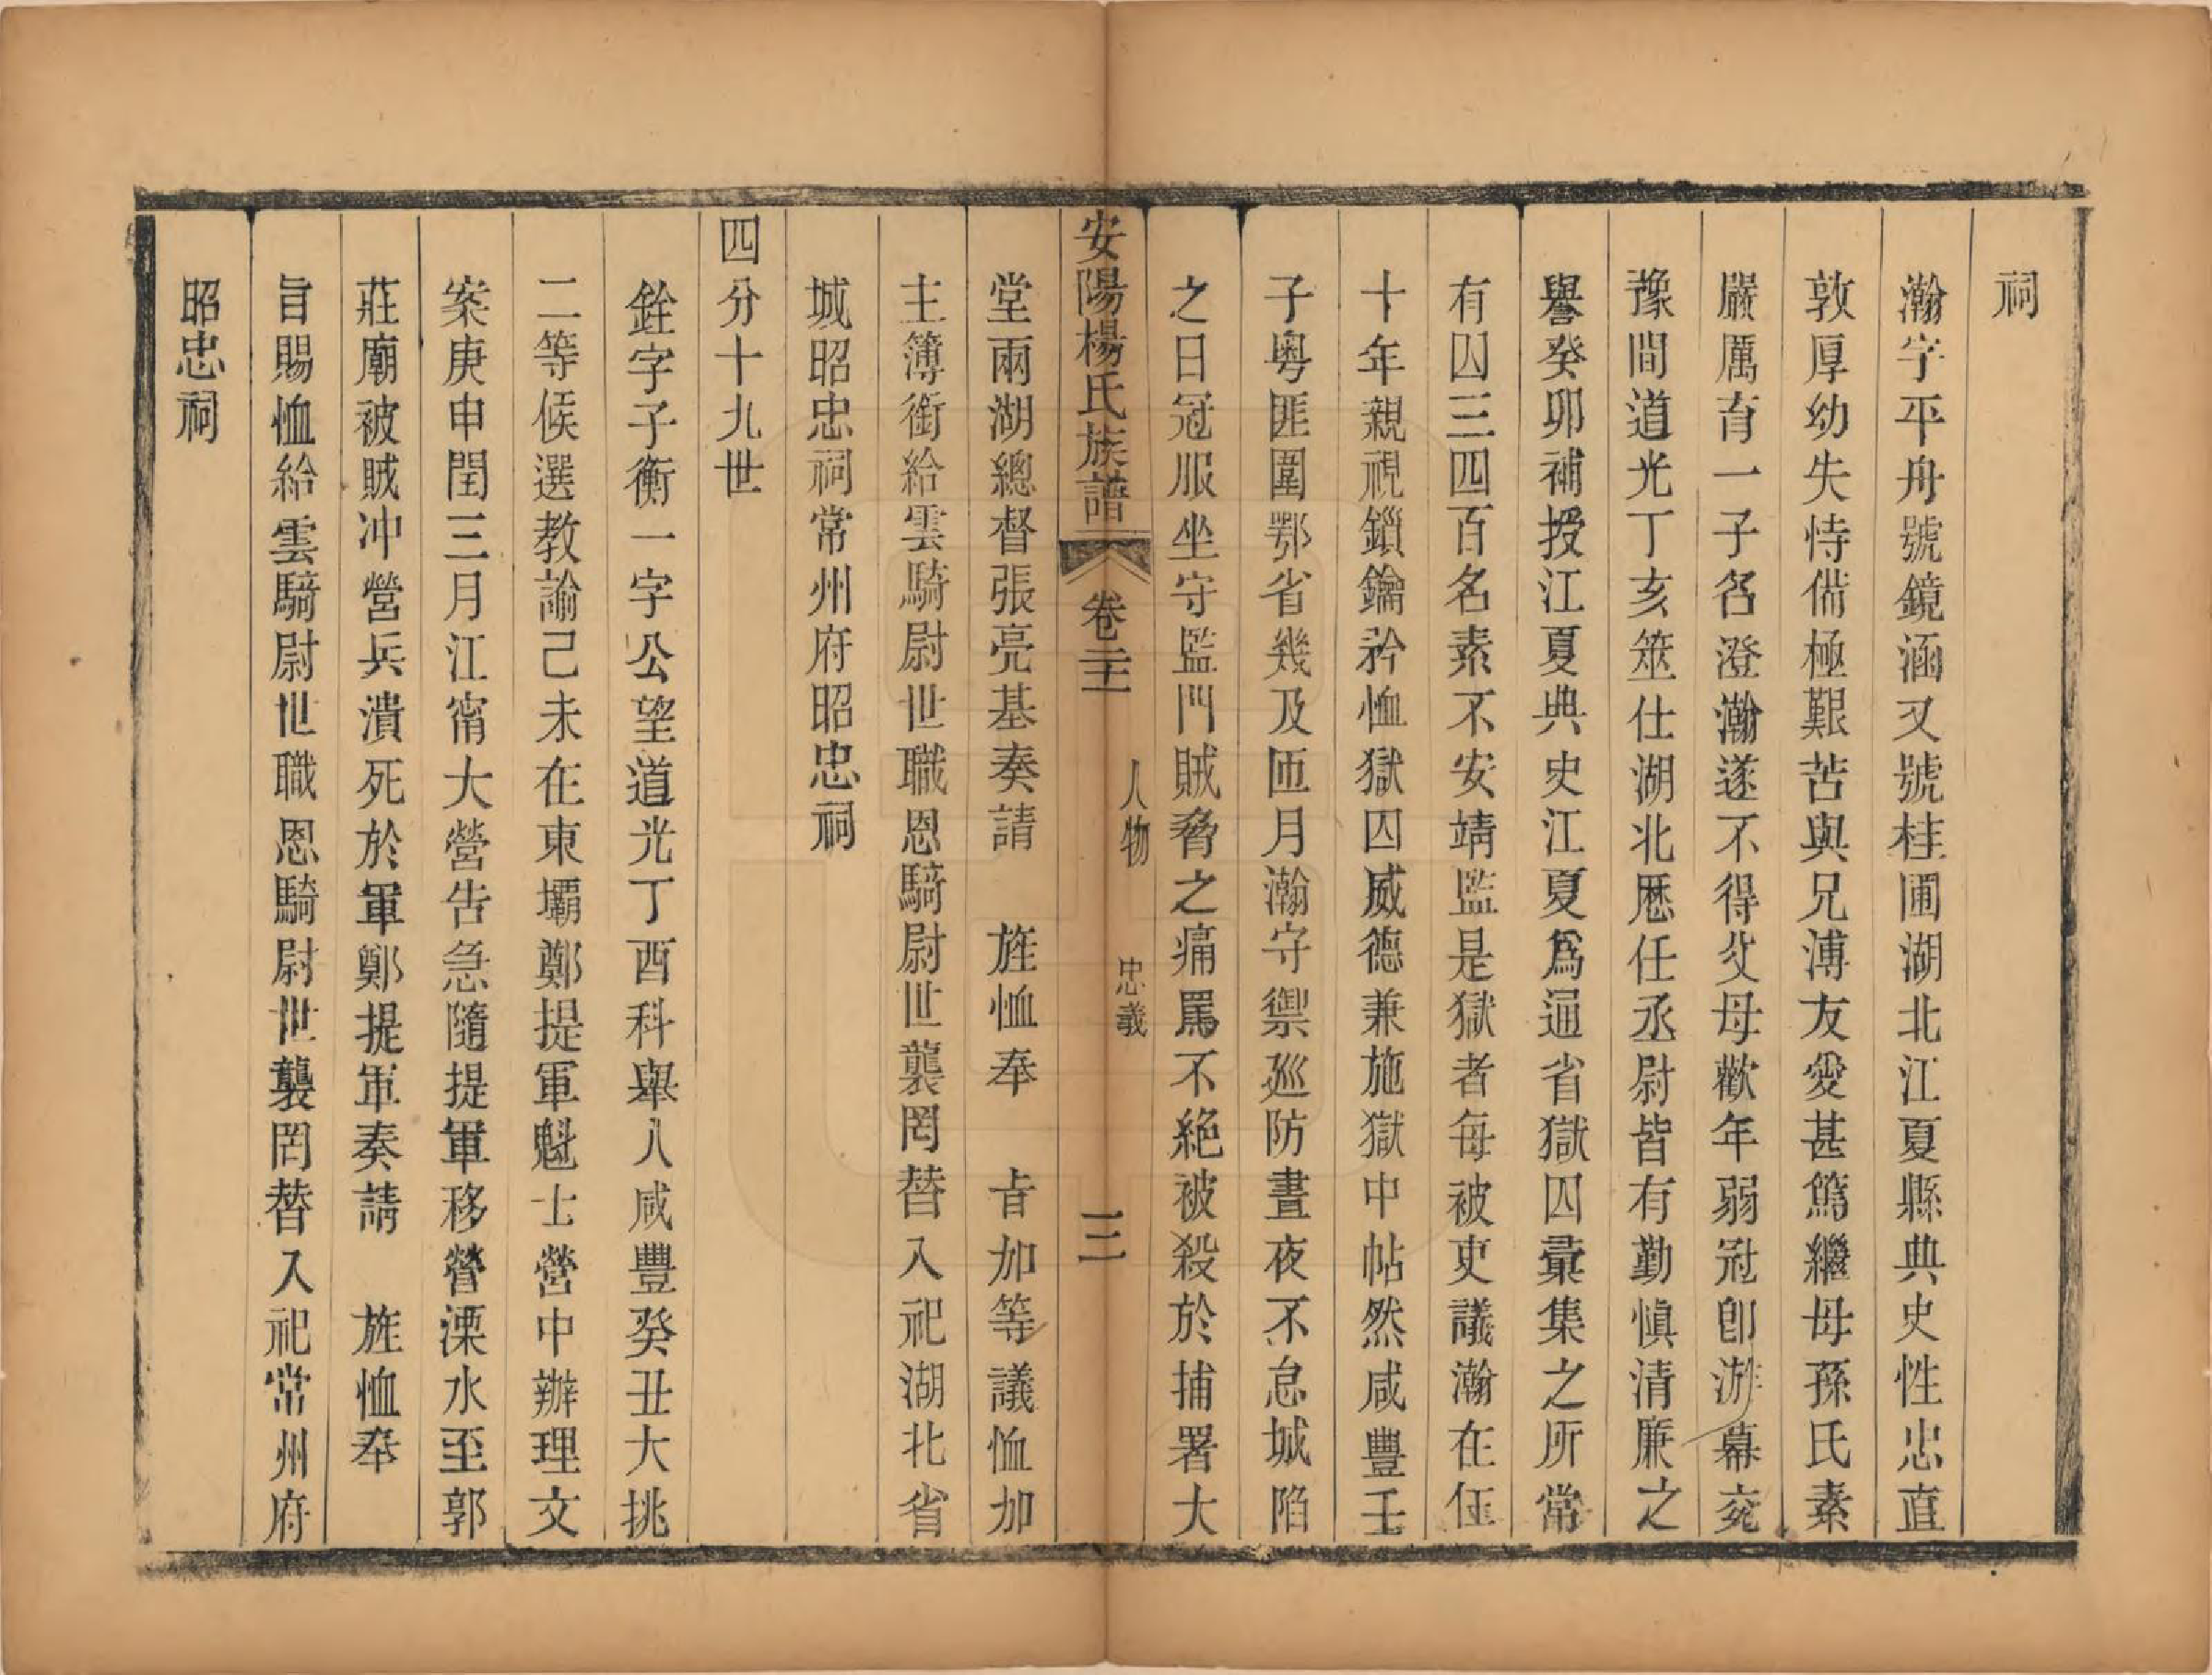 祠
瀚字平舟號鏡涵又號桂圃湖北江夏縣典史性忠直
敦厚幼失恃偹極艱苦與兄溥友愛甚篤繼母孫氏素
嚴厲育一子名澄瀚遂不得父母歡年弱冠卽游幕兗
豫間道光丁亥筮仕湖北歷任丞尉皆有勤慎清廉之
譽癸卯補授江夏典史江夏爲通省獄囚彙集之所常
有囚三四百名素不安靖監是獄者每被吏議瀚在任
十年親視鎖鑰矜恤獄囚威德兼施獄中帖然咸豐壬
子粤匪圍鄂省幾及匝月瀚守禦廵防晝夜不怠城陷
之日冠服坐守監門賊脅之痛罵不絶被殺於捕署大
安陽楊氏族譜
卷二十一
人物
忠義
三
堂兩湖總督張亮基奏請　旌恤奉　旨加等議恤加
主簿銜給雲騎尉世職恩騎尉世襲罔替入祀湖北省
城昭忠祠常州府昭忠祠
四分十九世
銓字子衡一字公望道光丁酉科舉人咸豐癸丑大挑
二等候選教諭己未在東壩鄭提軍魁士營中辦理文
案庚申閏三月江甯大營告急隨提軍移營溧水至郭
莊廟被賊冲營兵潰死於軍鄭提軍奏請　旌恤奉
旨賜恤給雲騎尉世職恩騎尉世襲罔替入祀常州府
昭忠祠